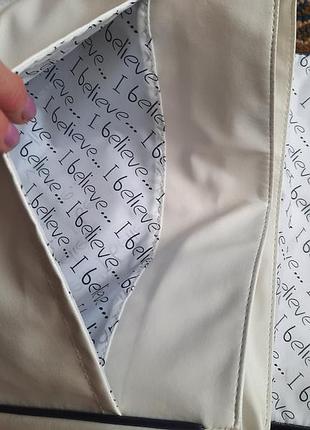 I believe...
I believe...
I believe...
I believe...
I believe...
I believe...
I believe...
I believe...
I believe...
I believe...
I believe...
I believe...
I believe...